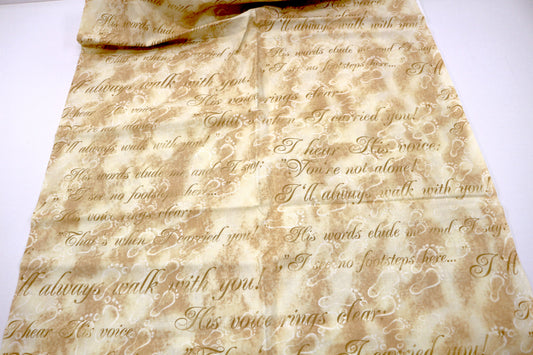 His words elude
I'll always walk with you!
His words elude me and I say:
"I see no footsteps here...
His voice rings clear:
I hear His voice
"You're not alone!
I'll always walk with you!
"That's when I carried you!
I hear His voice:
"You're not alone!
I'll always walk with you!
His words elude me and I say:
"I see no footsteps here...
His voice rings clear:
"That's when I carried you!
His words elude me and I say:
"I see no footsteps here...
I'll
I'll always walk with you!
His voice rings clear:
I hear His voice
"That's when I carried you!